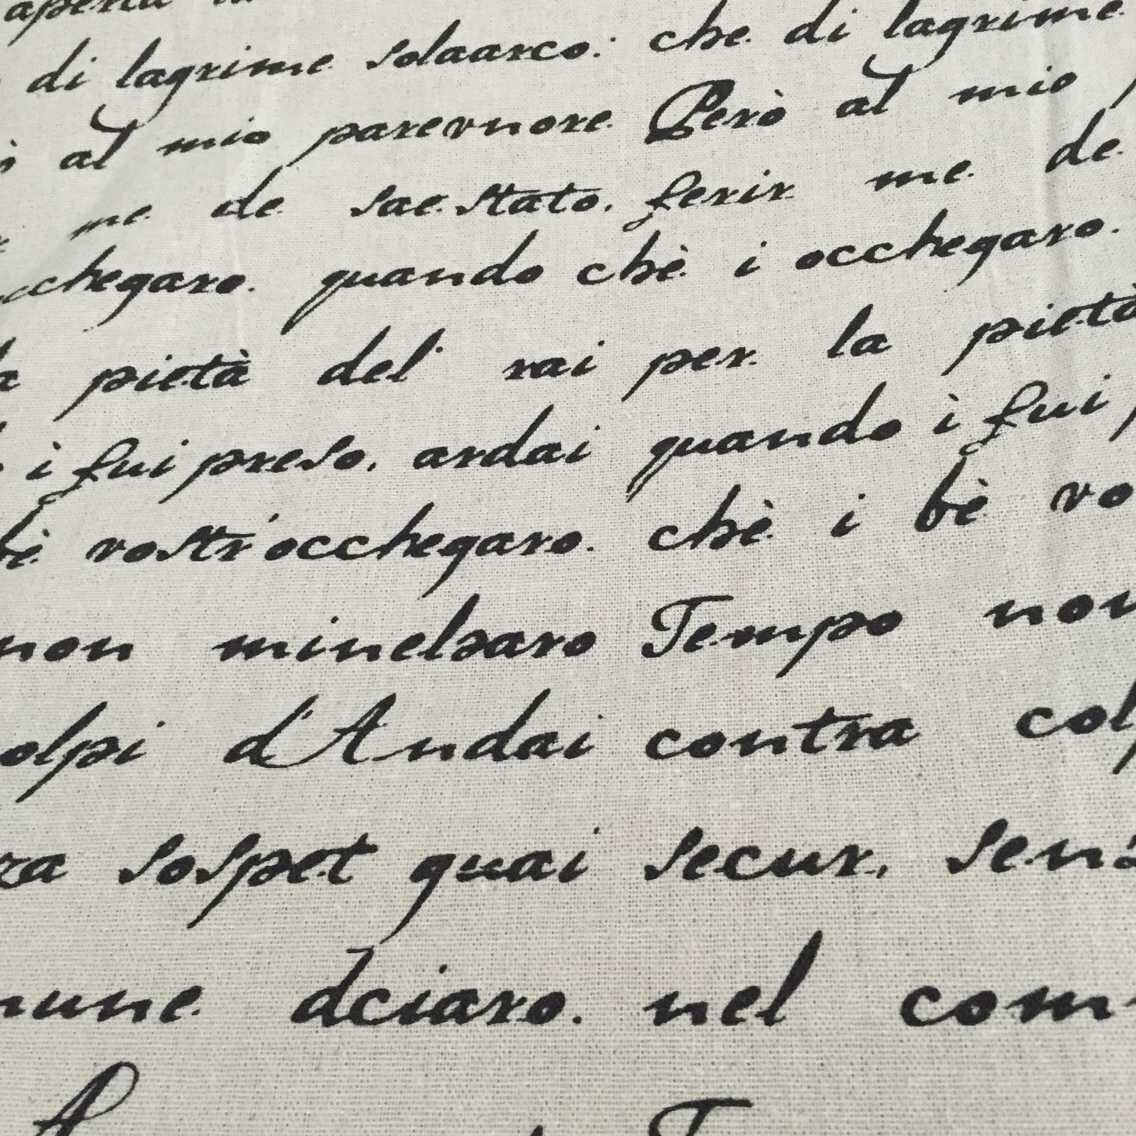 aperta
di lagrime solaarco: che di lagrime
al mio parevnore Però al mio
me de saestato. ferir me de
cchegaro. quando chè i occhegaro.
pietà del' rai per la pietà
i fui preso. ardai quando i fui
bè vostr'occhegaro. chè i bè vo
non minelsaro Tempo non
olpi d'Andai contra colp
za sospet quai secur, senz
mune dciaro. nel com
A T